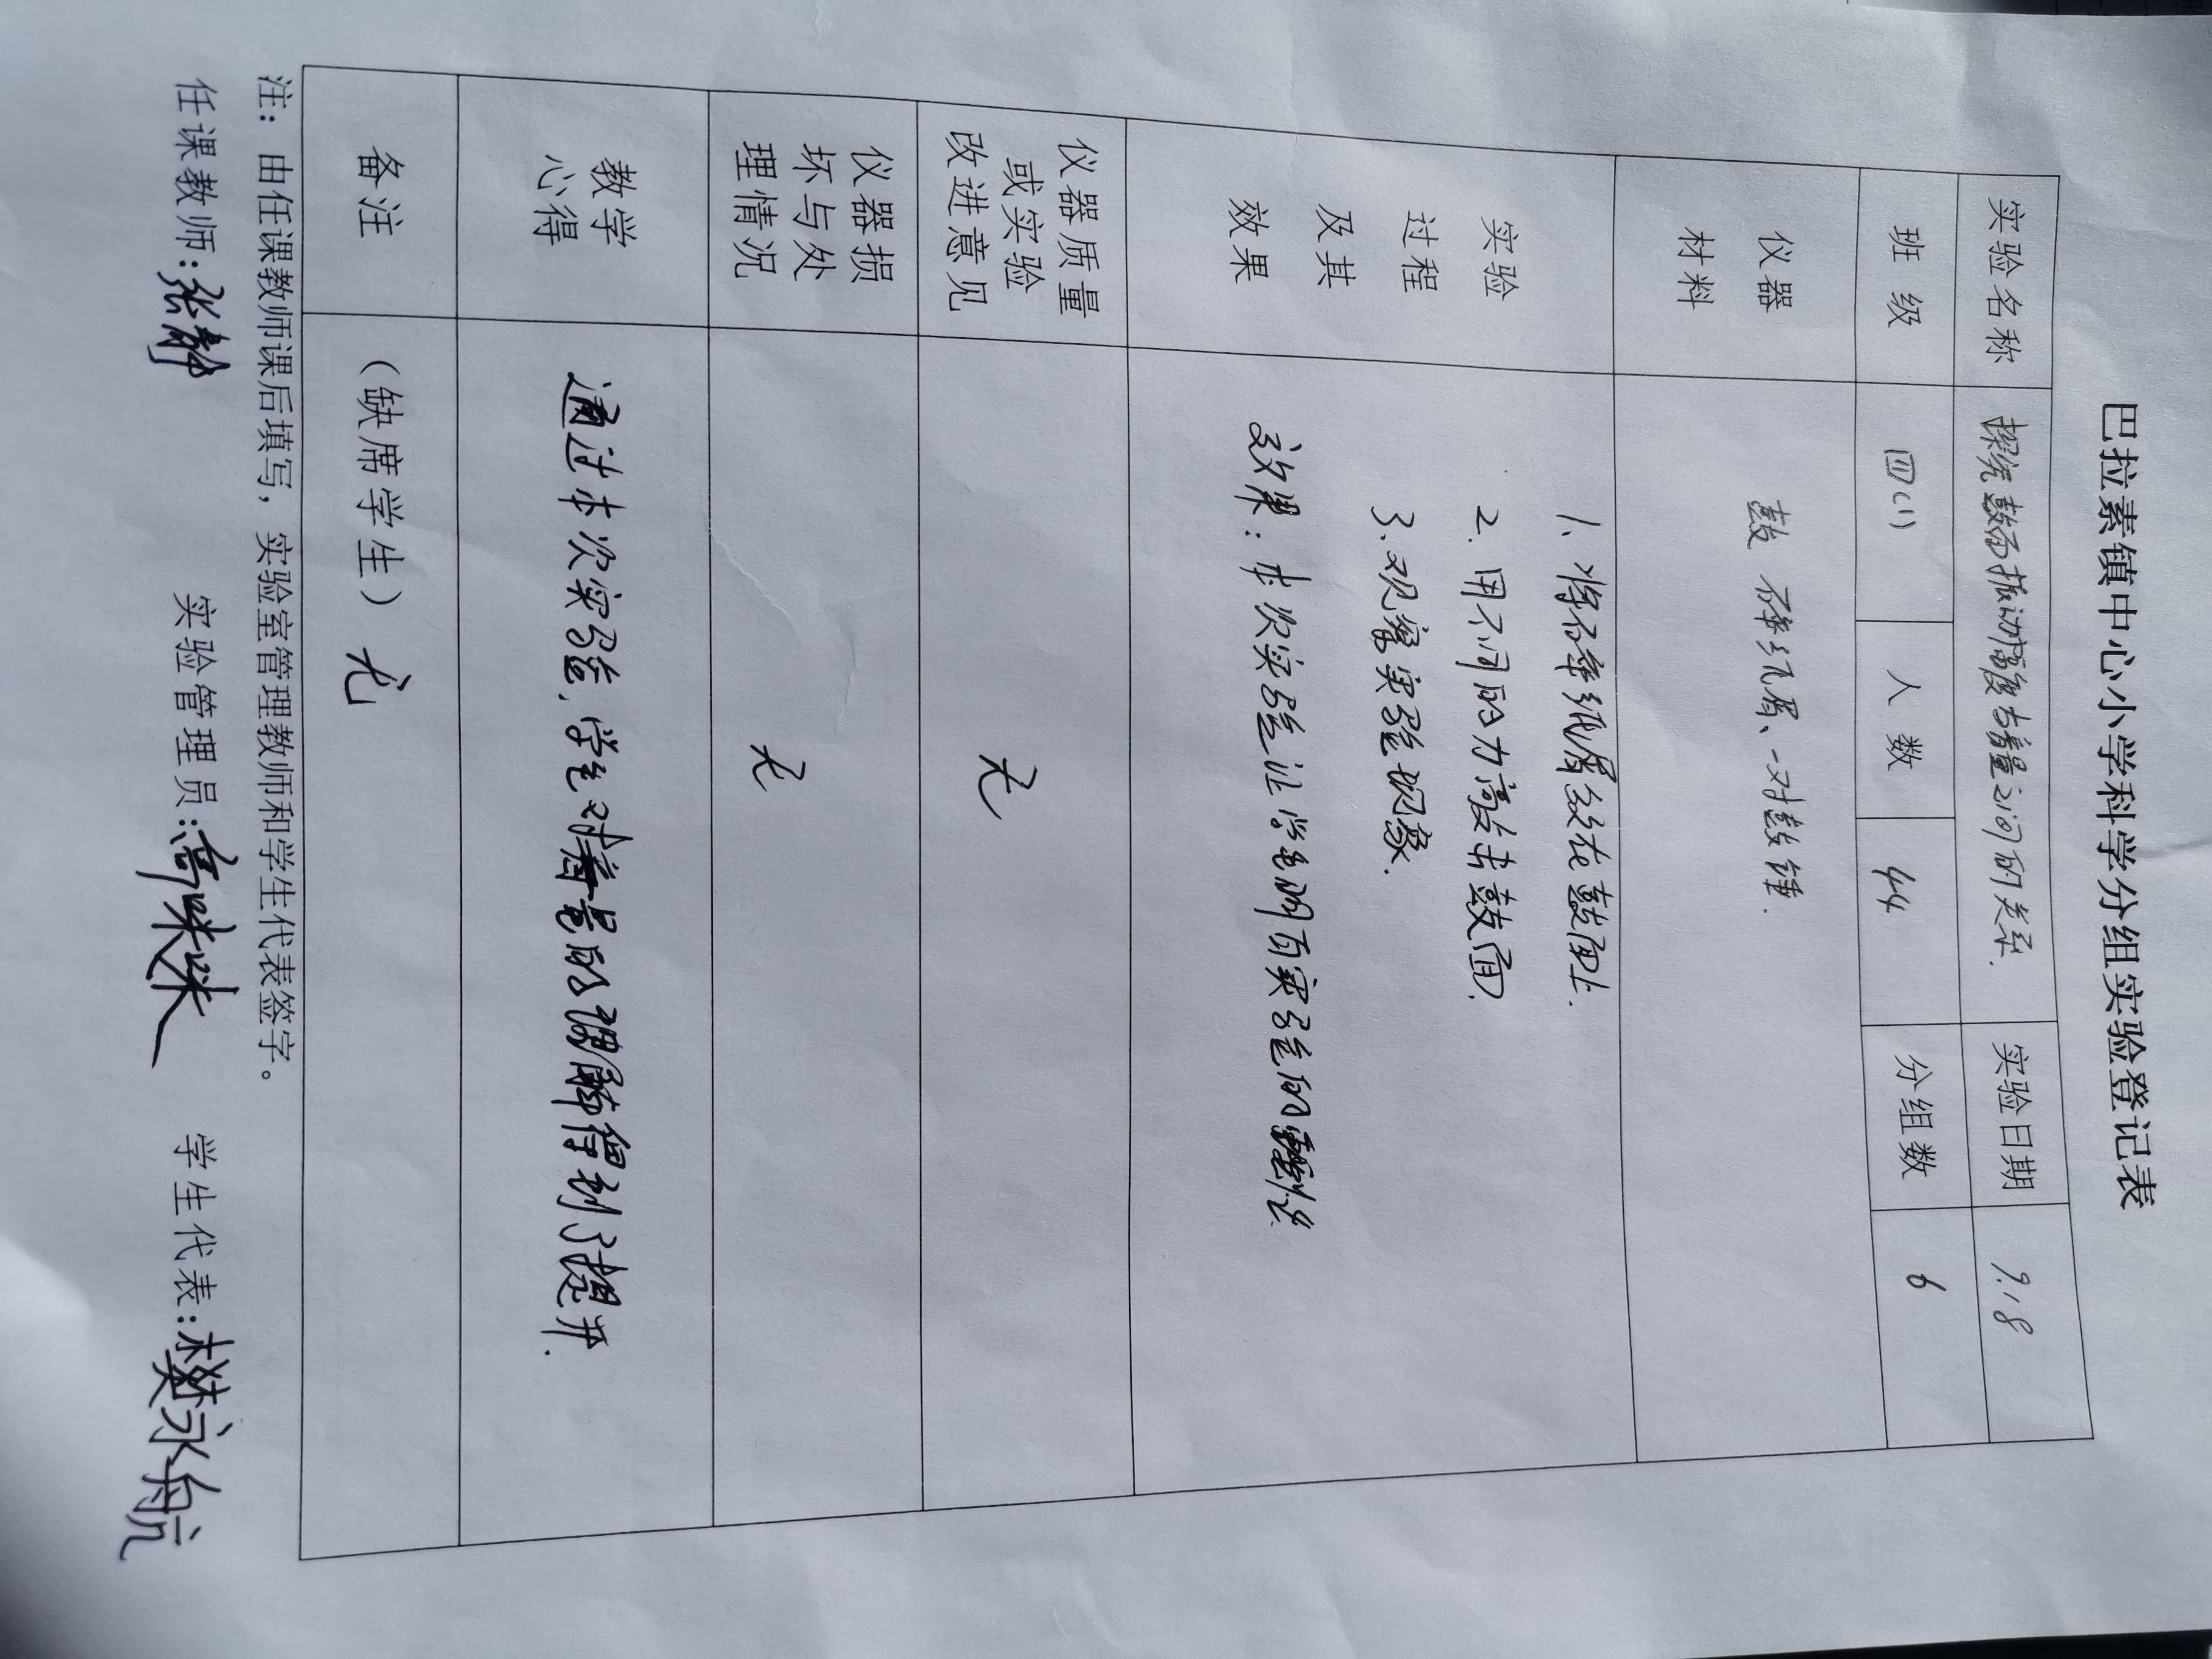 巴拉素镇中心小学科学分组实验登记表
实验名称 探究鼓面振动幅度与音量之间的关系. 实验日期 9.18
班 级 四(1) 人 数 44 分组数 6
仪器
材料
鼓 碎纸屑、一对鼓锤.
实验
过程
及其
效果
1、将碎纸屑放在鼓面上.
2、用不同的力敲击鼓面.
3、观察实验现象.
效果：本次实验让学生明白实验的重要性.
仪器质量
或实验
改进意见
无
仪器损
坏与处
理情况
无
教学
心得
通过本次实验，学生对音量的理解得到了提升.
备注
（缺席学生）无
注：由任课教师课后填写，实验室管理教师和学生代表签字。
任课教师:张静 实验管理员:高咪咪 学生代表:樊永航